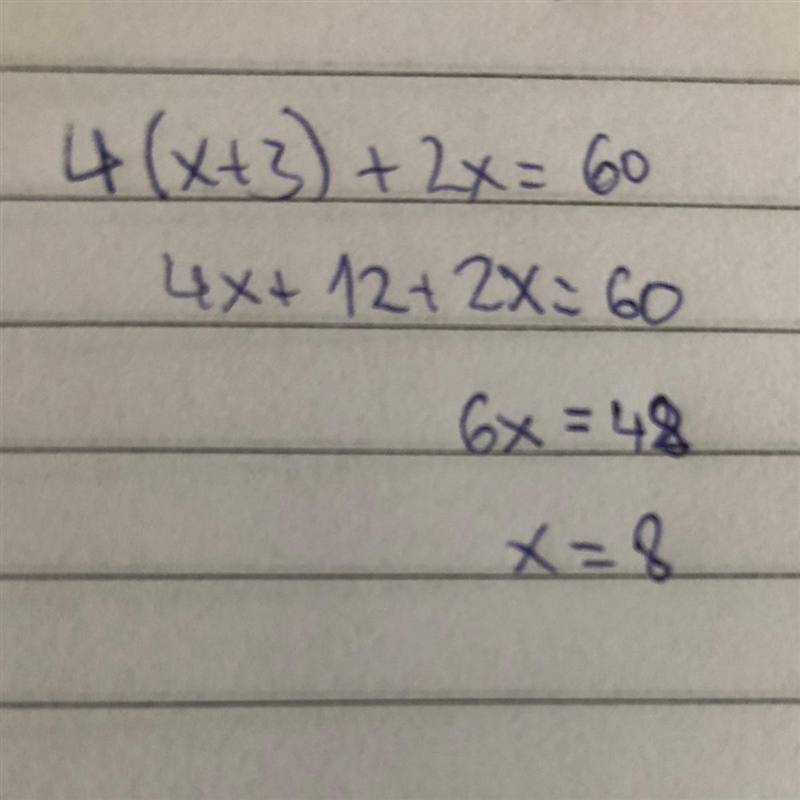 4(x+3) + 2x = 60
4x + 12 + 2x = 60
6x = 48
x = 8